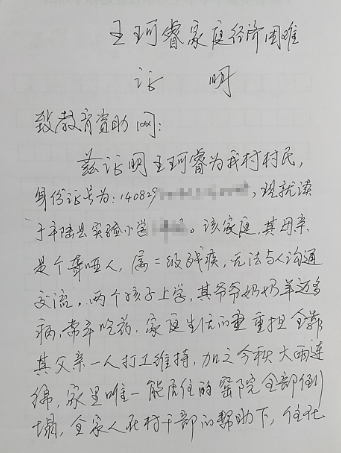 王珂睿家庭经济困难
证 明
致教育资助网:
兹证明王珂睿为我村村民,
身份证号为:140829 ,现就读
于平陆县实验小学 。该家庭,其母亲
是个聋哑人,属二级残疾,无法与人沟通
交流。两个孩子上学,其爷爷奶奶年迈多
病,常年吃药,家庭生活的重担全靠
其父亲一人打工维持,加之今秋大雨连
绵,家里唯一能居住的窑院全部倒
塌,全家人在村干部的帮助下,住在